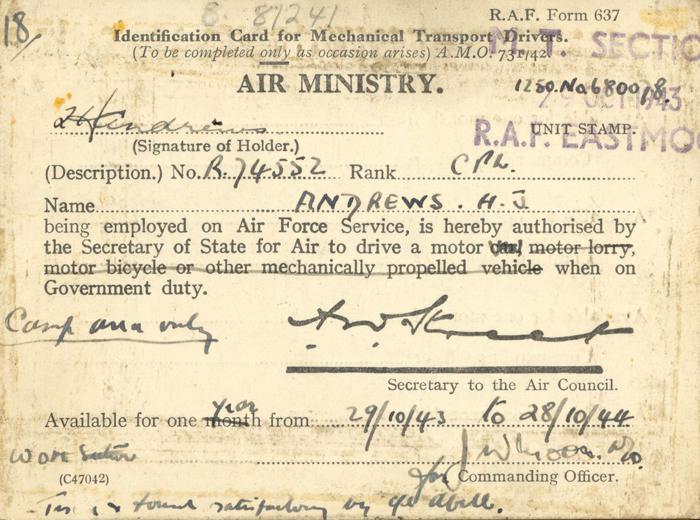 18/
R.A.F. Form 637
Identification Card for Mechanical Transport Drivers.
(To be completed only as occasion arises) A.M.O. 731/42
M.T. SECTION
AIR MINISTRY.
1250.No.6800/8.
29 OCT 1943
UNIT STAMP.
R.A.F. EASTMOO
H Andrews
(Signature of Holder.)
(Description.) No. R.74552 Rank CPL.
Name ANDREWS. H.J
being employed on Air Force Service, is hereby authorised by
the Secretary of State for Air to drive a motor car, motor lorry,
motor bicycle or other mechanically propelled vehicle when on
Government duty.
Camp area only
A W Street
Secretary to the Air Council.
Available for one month year from 29/10/43 to 28/10/44
for Commanding Officer.
(C47042)
found satisfactory by